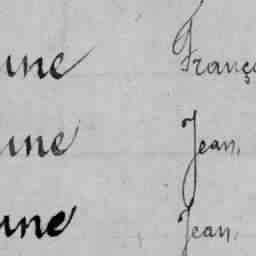 une Franç
une Jean,
une Jean,